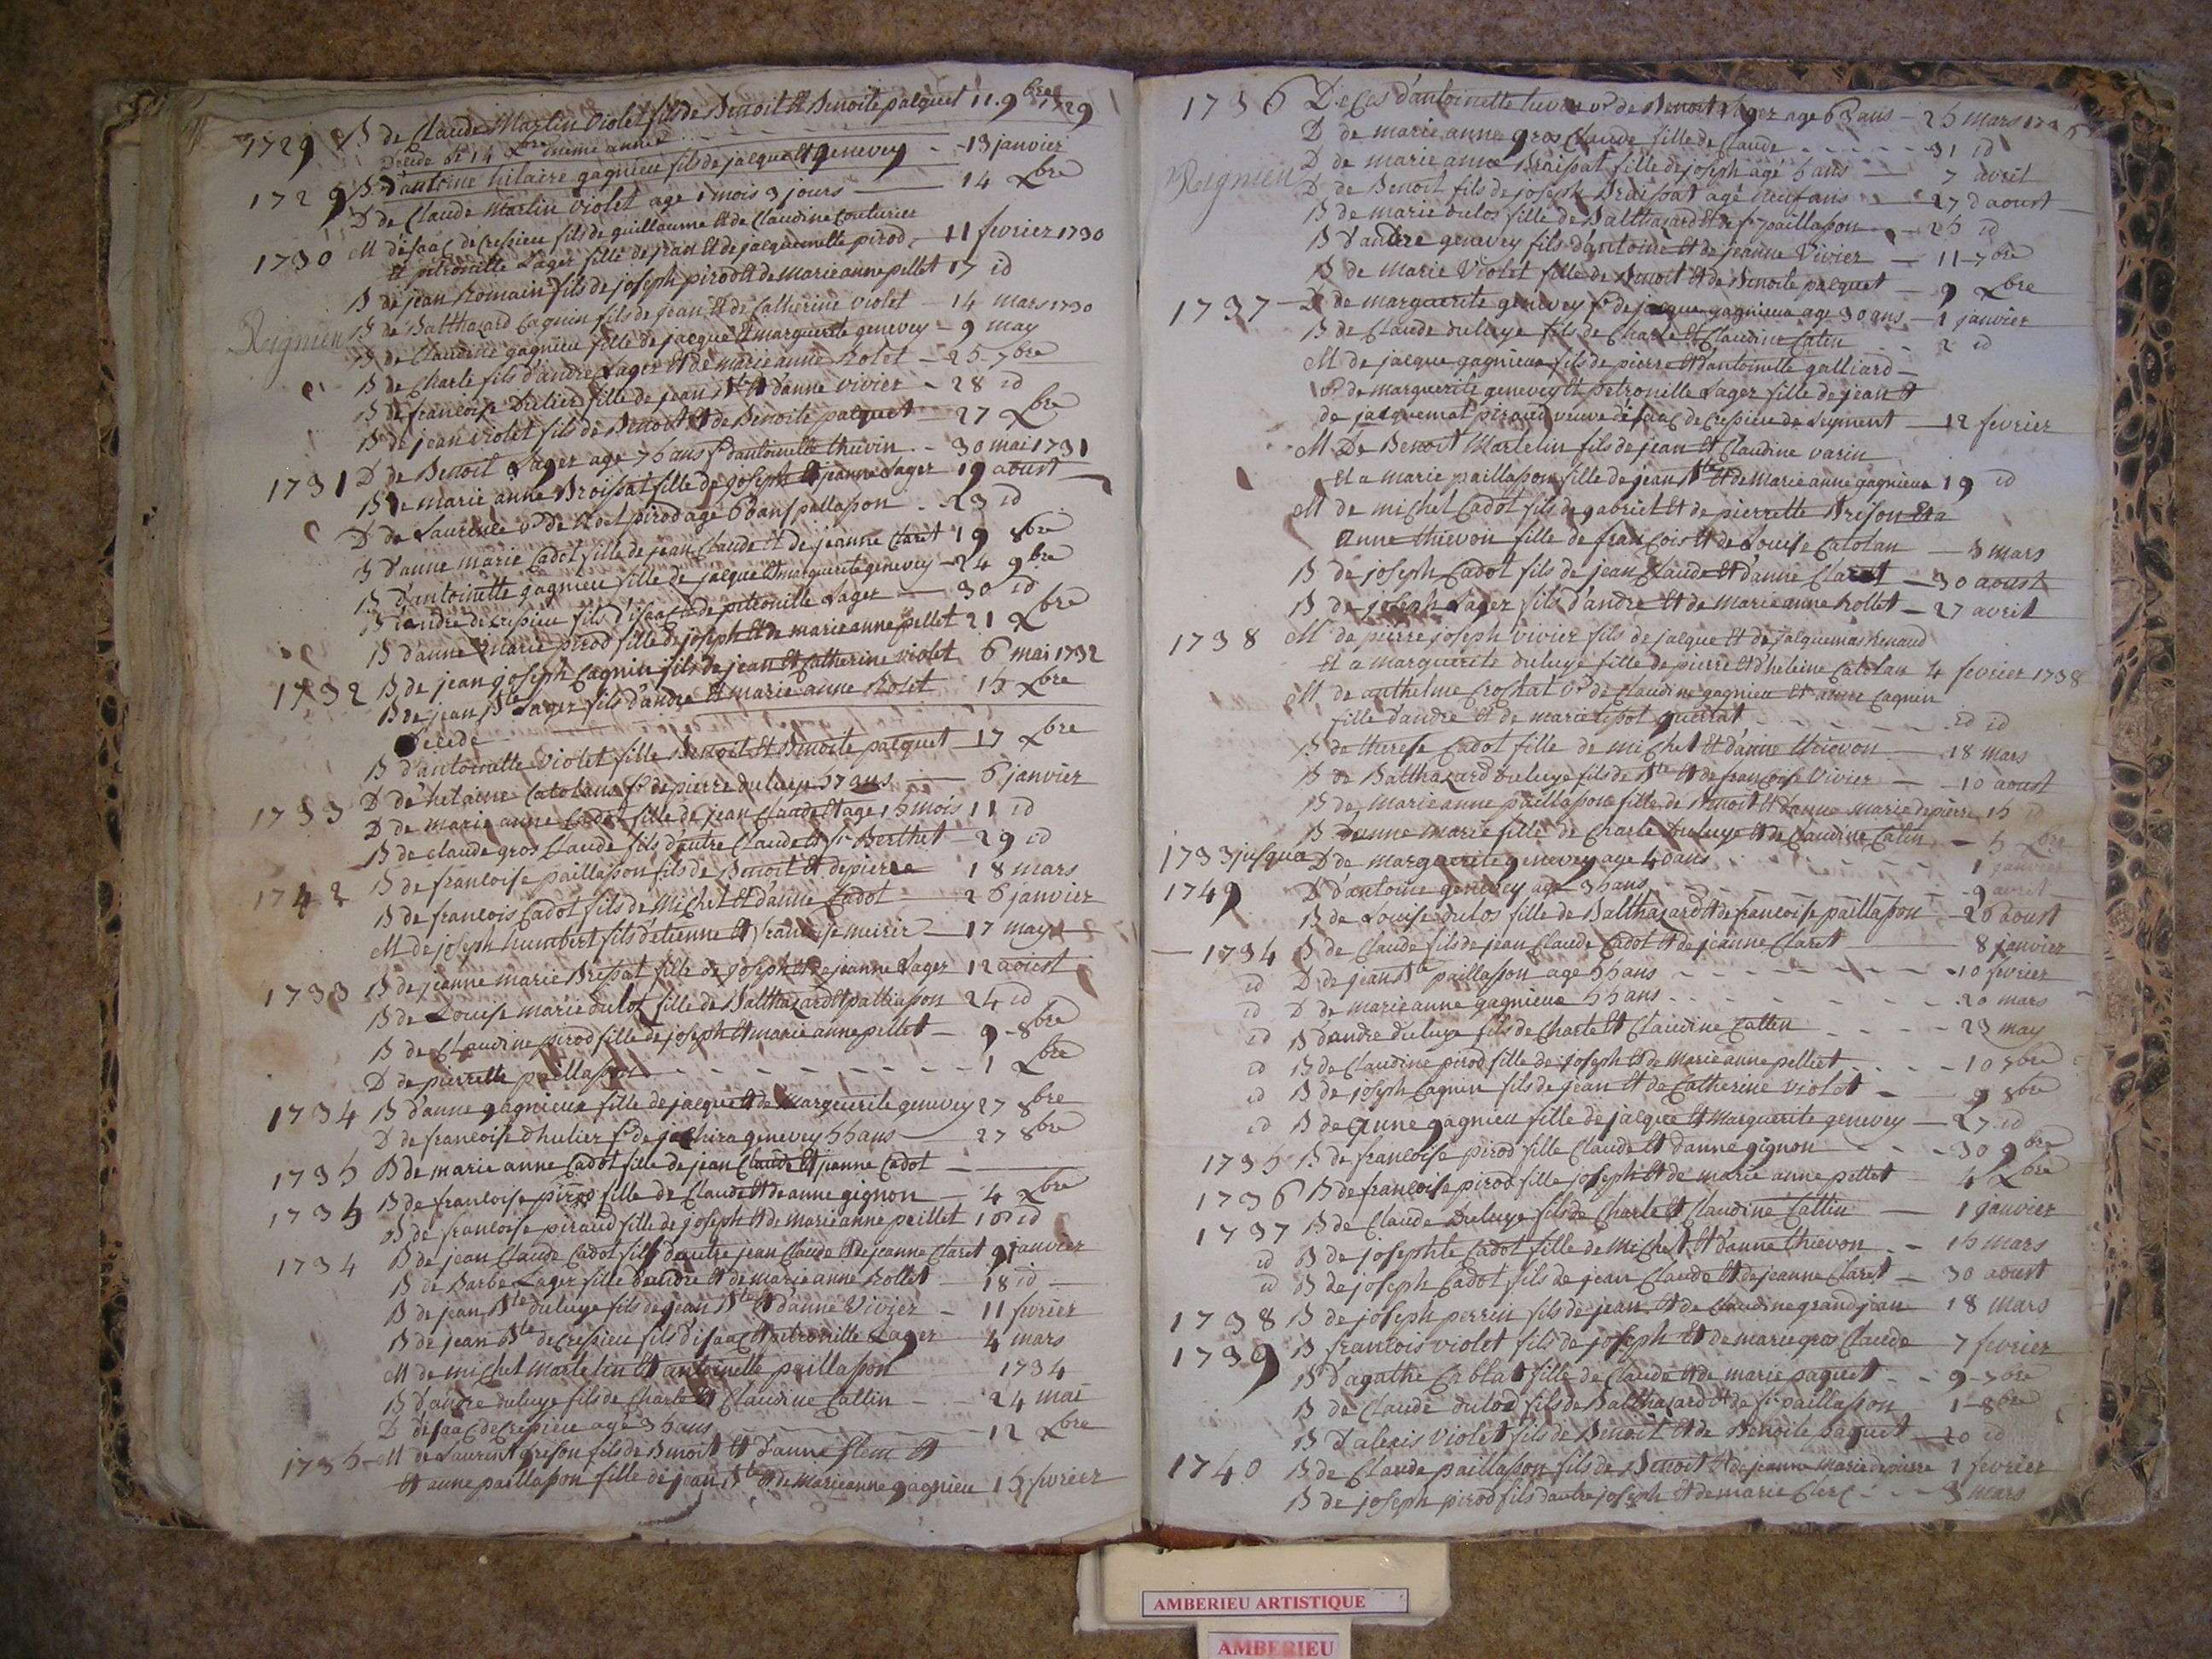 1729 B de Claude Marlin Violet fils de Benoit et Benoite paequet 11. 9bre 1729
Decede le 14 Xbre meme année
1729 B d'antoine hilaire gagnieu fils de jacque et genevey - 13 janvier
D de Claude Marlin Violet age 1 mois 3 jours — 14 Xbre
1730 M d'isaac decrepieu fils de guillaume et de Claudine Couturier
et petronille Lager fille de jean et de jacquemette pirod, - 11 fevrier 1730
B de jean Romain fils de joseph pirod et de marie anne pellet 17 id
Rignieu B de Balthazard Cagnin fils de jean et de Catherine violet - 14 mars 1730
B de Claudine gagnieu fille de jacque et marguerite genevey - 9 may
B de Charle fils d'andre Lager et de marie anne Rolet - 25 - 7bre
B de francoise Dulier fille de jean Bte et d'anne vivier - 28 id
B de jean violet fils de Benoit et de Benoite paequet - 27 Xbre
1731 D de Benoit Lager age 75 ans fe d'antoinette thevin - 30 mai 1731
B de marie anne Broissat fille de joseph et jeanne Lager 19 aoust
D de Laurence ve de pirod age 60 ans pallasson - 23 id
B d'anne marie Cadot fille de jean Claude et de jeanne Claret 19 8bre
B d'antoinette gagnieu fille de jacque et marguerite genevey - 24 9bre
B d'andre decrepieu fils d'isaac et de petronille Lager — 30 id
B d'anne marie pirod fille de joseph et de marie anne pellet 21 Xbre
1732 B de jean joseph Cagnin fils de jean et Catherine violet 6 mai 1732
B de jean Bte Lager fils d'andre et marie anne Rolet 15 Xbre
Decede
B d'antoinette Violet fille Benoit et Benoite paequet - 17 Xbre
1733 D de helaine Catolana fe de pierre duluye 57 ans — 6 janvier
D de marie anne Cadot fille de jean Claude et age 15 mois 11 id
B de claude gros Claude fils d'autre Claude et fse Berthet - 29 id
B de francoise paillasson fils de Benoit et depierre 18 mars
1742 B de francois Cadot fils de Michel et d'anne Cadot 26 janvier
M de joseph humbert fils d'etienne et francoise meirir - 17 may
1733 B de jeanne marie Bressat fille de joseph et de jeanne Lager 12 aoust
B de Louise marie dulot fille de Balthazard et palliasson 24 id
B de Claudine pirod fille de joseph et marie anne pellet - 9 - 8bre
D de pierrette paillasson - - - - - - - - - 1 Xbre
1734 B d'anne gagnieux fille de jacque et de Marguerite genevey 27 8bre
D de francoise dhulier fe de genevey 55 ans 27 8bre
1735 B de marie anne Cadot fille de jean Claude et jeanne Cadot —
1735 B de francoise pirod fille de Claude et de anne gignon - 4 Xbre
B de francoise piraud fille de joseph et de marie anne peillet 10 id
1734 B de jean Claude Cadot fils d'autre jean Claude et de jeanne Claret 9 janvier
B de Barbe Lager fille d'andre et de marie anne Rollet 18 id —
B de jean Bte duluye fils de jean Bte et d'anne Vivier - 11 fevrier
B de jean Bte decrepieu fils d'isaac et petronille Lager - 4 mars
M de michel Martelin et antoinette paillasson 1734
B d'andre duluye fils de Charle et Claudine Cattin - - 24 mai
D d'isaac decrepieu agé 35 ans — 12 Xbre
1735 - M de Laurent grison fils de Benoit et d'anne flem et
et anne paillasson fille de jean Bte et de Marie anne gagnieu 15 fevrier
1736 Deces d'antoinette tuvin ve de Benoit Lager age 63 ans - 25 mars 1736
D de marie anne gros Claude fille de Claude - - - - - 31 id
Rignieu D de marie anne Braissat fille de joseph agé 5 ans — 7 avril
D de Benoit fils de joseph Braissat agé neuf ans - 27 d'aoust
B de marie dulos fille de Balthazard et de fse paillasson - 25 id
B d'andre genevey fils d'antoine et de jeanne Vivier - 11 - 7bre
B de marie Violet fille de Benoit et de Benoite paequet - 9 Xbre
1737 - D de marguerite genevey fe de jacque gagnieux age 30 ans - 1 janvier
B de Claude duluye fils de Charle et Claudine Catin - - 2 id
M de jacque gagnieux fils de pierre et d'antoinette galliard -
ve de marguerite genevey et petronille Lager fille de jean et
de jacquemat piraud veuve d'isaac decrepieu de Leyment - 12 fevrier
M De Benoit Martelin fils de jean et Claudine varin
et a marie paillasson fille de jean Bte et de Marie anne gagnieux 19 id
M de michel Cadot fils de gabriel et de pierrette Brison et a
anne thievon fille de francois et de Louise Catolan - 5 mars
B de joseph Cadot fils de jean Claude et d'anne Claret - 30 aoust
B de joseph Lager fils d'andre et de Marie anne Rollet - 27 avril
1738 M de pierre joseph vivier fils de jacque et de jacquemas Renaud
et a marguerite duluye fille de pierre et d'heleine Catolan 4 fevrier 1738
M de anthelme Crostat ve de Claudine gagnieu et anne Cagnin
fille d'andre et de marie guerrat - - - - - id id
B de therese Cadot fille de michel et d'anne thievon - 18 mars
B de Balthazard duluye fils de Bte et de francoise Vivier - 10 aoust
B de Marie anne paillasson fille de Benoit et d'anne marie depierre 15 id
B d'anne marie fille de Charle duluye et de Claudine Catin - 5 Xbre
1733 jusqua D de marguerite genevey age 40 ans - - 1 janvier
1749 D d'antoine genevey age 35 ans - - - - 9 avril
B de Louise dulos fille de Balthazard et de francoise paillasson - 26 aoust
— 1734 B de Claude fils de jean Claude Cadot et de jeanne Claret — 8 janvier
id D de jean Bte paillasson age 55 ans - - - - - - 10 fevrier
id D de marie anne gagnieux 55 ans - - - - - - 20 mars
id B d'andre duluye fils de Charle et Claudine Cattin - - - - 23 may
id B de Claudine pirod fille de joseph et de Marie anne pelliet - - - 10 7bre
id B de joseph Cagnin fils de jean et de Catherine Violet - - 9 8bre
id B de anne gagnieu fille de jacque et Marguerite genevey - 27 id
1735 B de francoise pirod fille Claude et d'anne gignon - - 30 9bre
1736 B de francoise pirod fille joseph et de marie anne pellet - 4 Xbre
1737 B de Claude Duluye fils de Charle et Claudine Cattin - 1 janvier
id B de josephte Cadot fille de Michel et d'anne thievon - - 15 mars
id B de joseph Cadot fils de jean Claude et de jeanne Claret - 30 aoust
1738 B de joseph perrin fils de jean et de Claudine grandjean 18 mars
1739 B francois violet fils de joseph et de marie gros Claude - 7 fevrier
B d'agathe Cablat fille de Claude et de marie paquet - - 9 - 7bre
B de Claude dulod fils de Balthazard et de fse paillasson - 1 - 8bre
B d'alexis Violet fils de Benoit et de Benoite paquet - 20 id
1740 B de Claude paillasson fils de Benoit et de jeanne Marie depierre 1 fevrier
B de joseph pirod fils d'autre joseph et de marie Clerc - - - 3 mars
AMBERIEU ARTISTIQUE
AMBERIEU